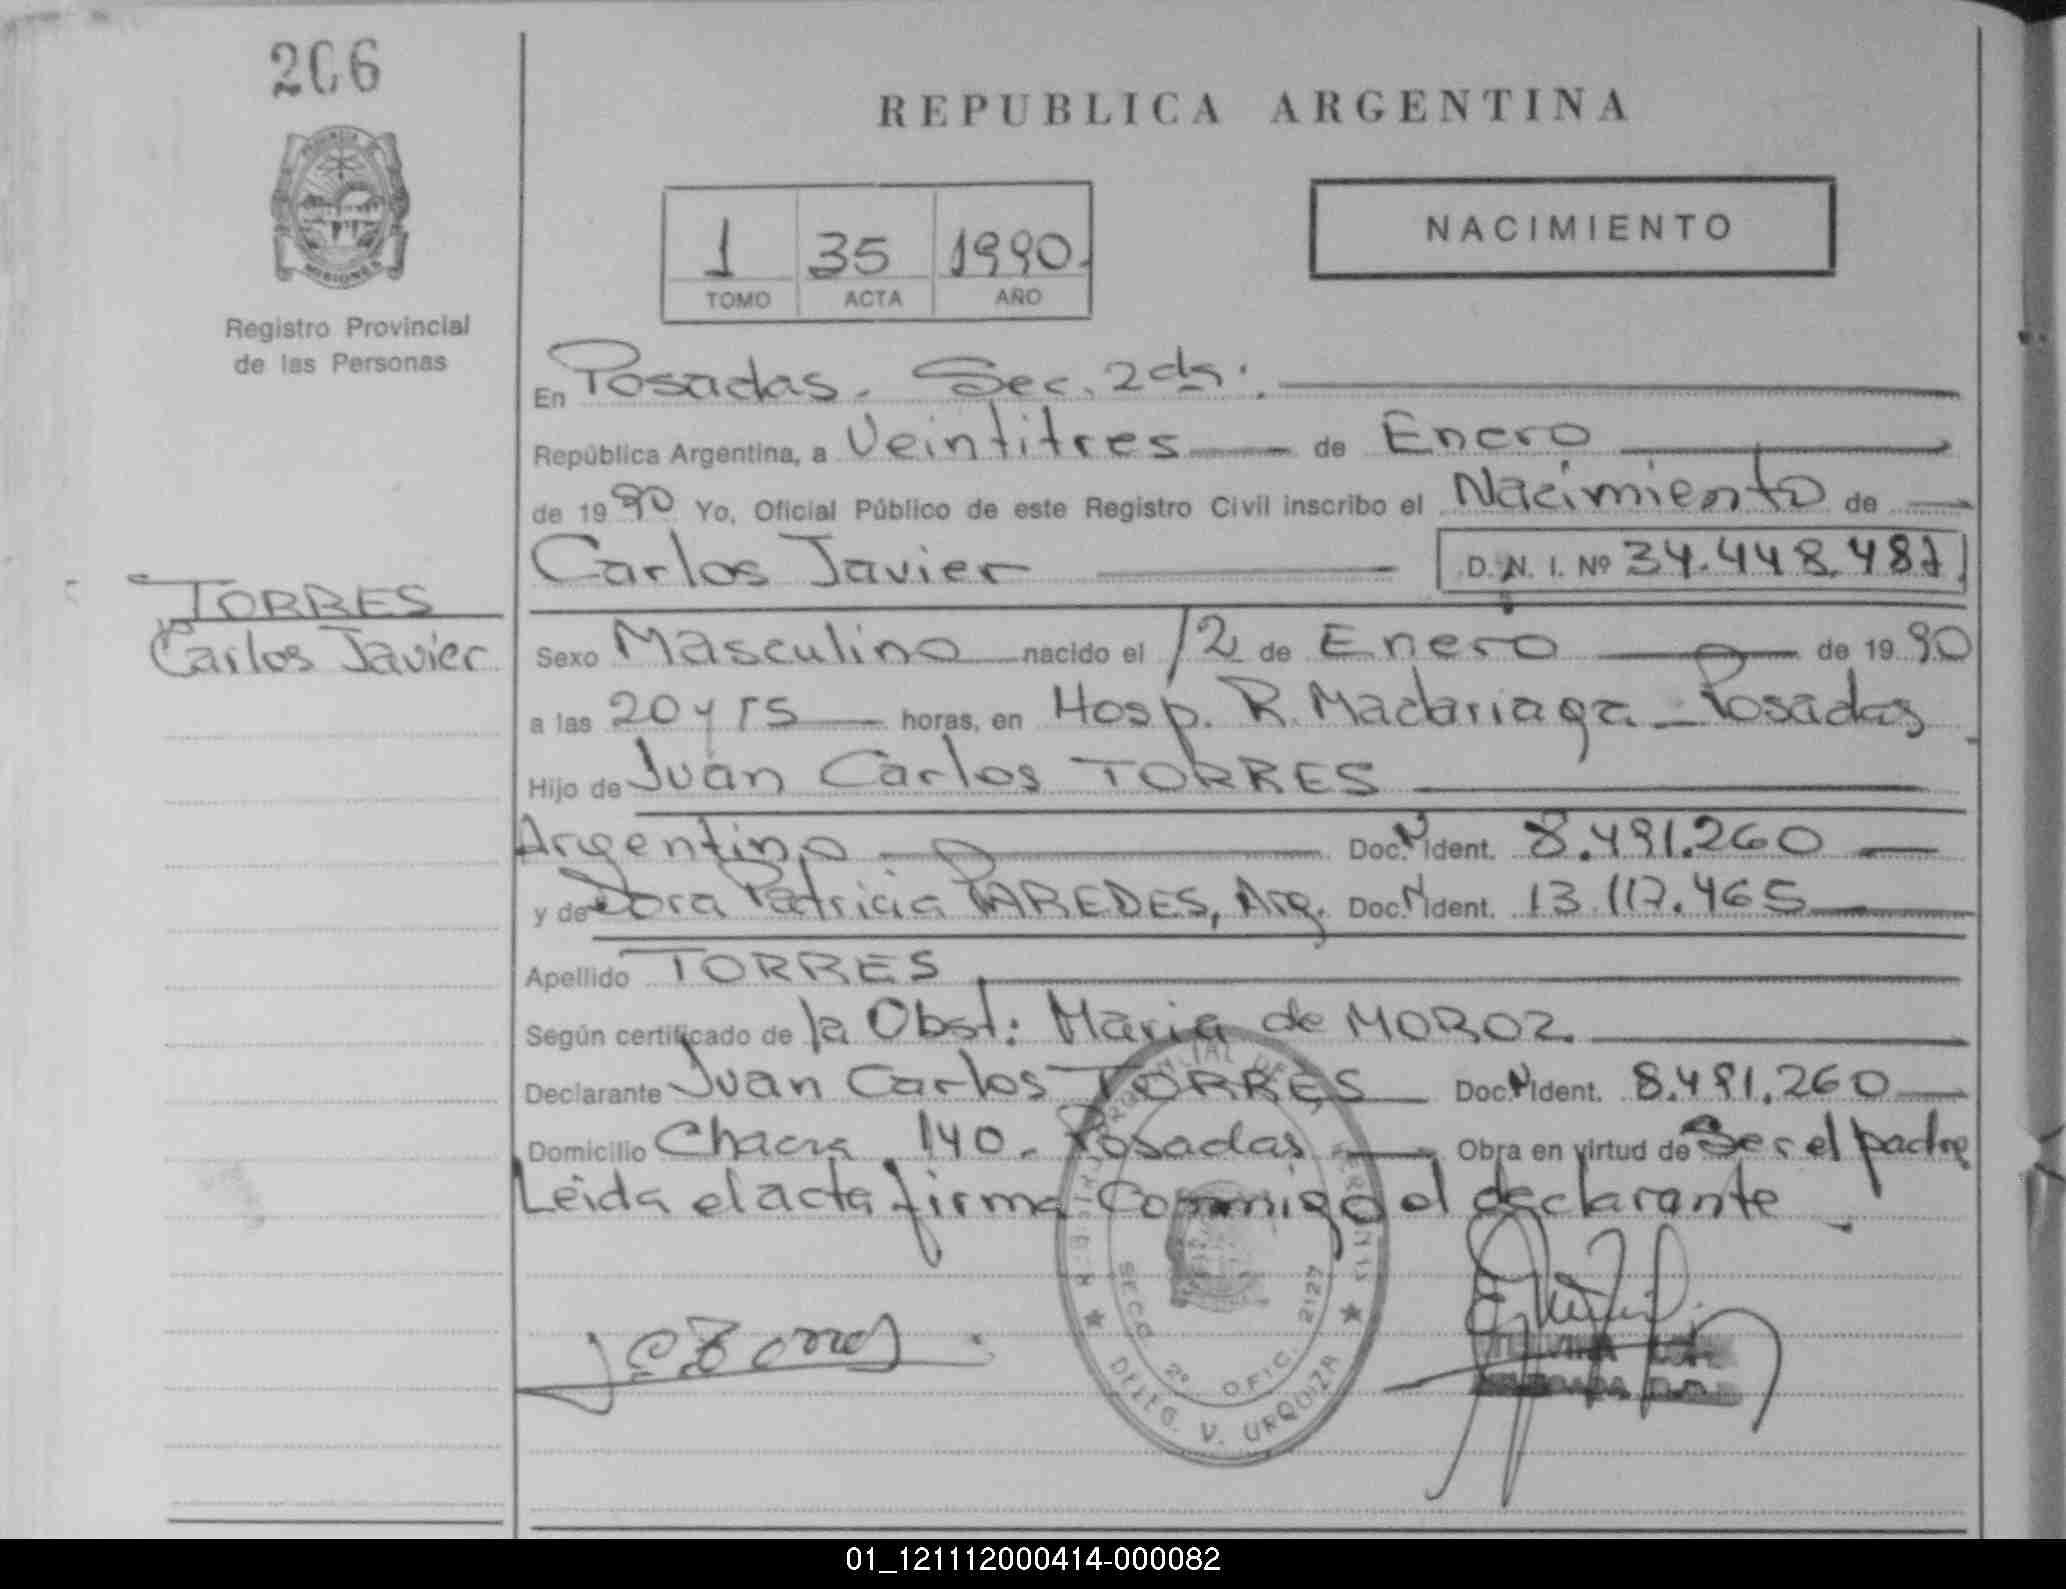 206
REPUBLICA ARGENTINA
NACIMIENTO
1 35 1990.
TOMO ACTA AÑO
PROVINCIA DE
MISIONES
Registro Provincial
de las Personas
En Posadas. Sec. 2da:.
República Argentina, a Veintitres de Enero
de 1990 Yo, Oficial Público de este Registro Civil inscribo el Nacimiento de
Carlos Javier D.N.I. Nº 34.448.487
TORRES
Carlos Javier
Sexo Masculino nacido el 12 de Enero de 1990
a las 20 y 15 horas, en Hosp. R. Madariaga - Posadas
Hijo de Juan Carlos TORRES
Argentino Doc. N Ident. 8.491.260
y de Dora Patricia PAREDES, Arg. Doc. N Ident. 13.117.465
Apellido TORRES
Según certificado de la Obst: Maria de MOROZ.
Declarante Juan Carlos TORRES Doc. N Ident. 8.491.260
Domicilio Chacra 140. Posadas Obra en virtud de Ser el padre
Leida el acta firma Conmigo el declarante
SECC. 2º OFIC. 2127
DELEG. V. URQUIZA
01_121112000414-000082